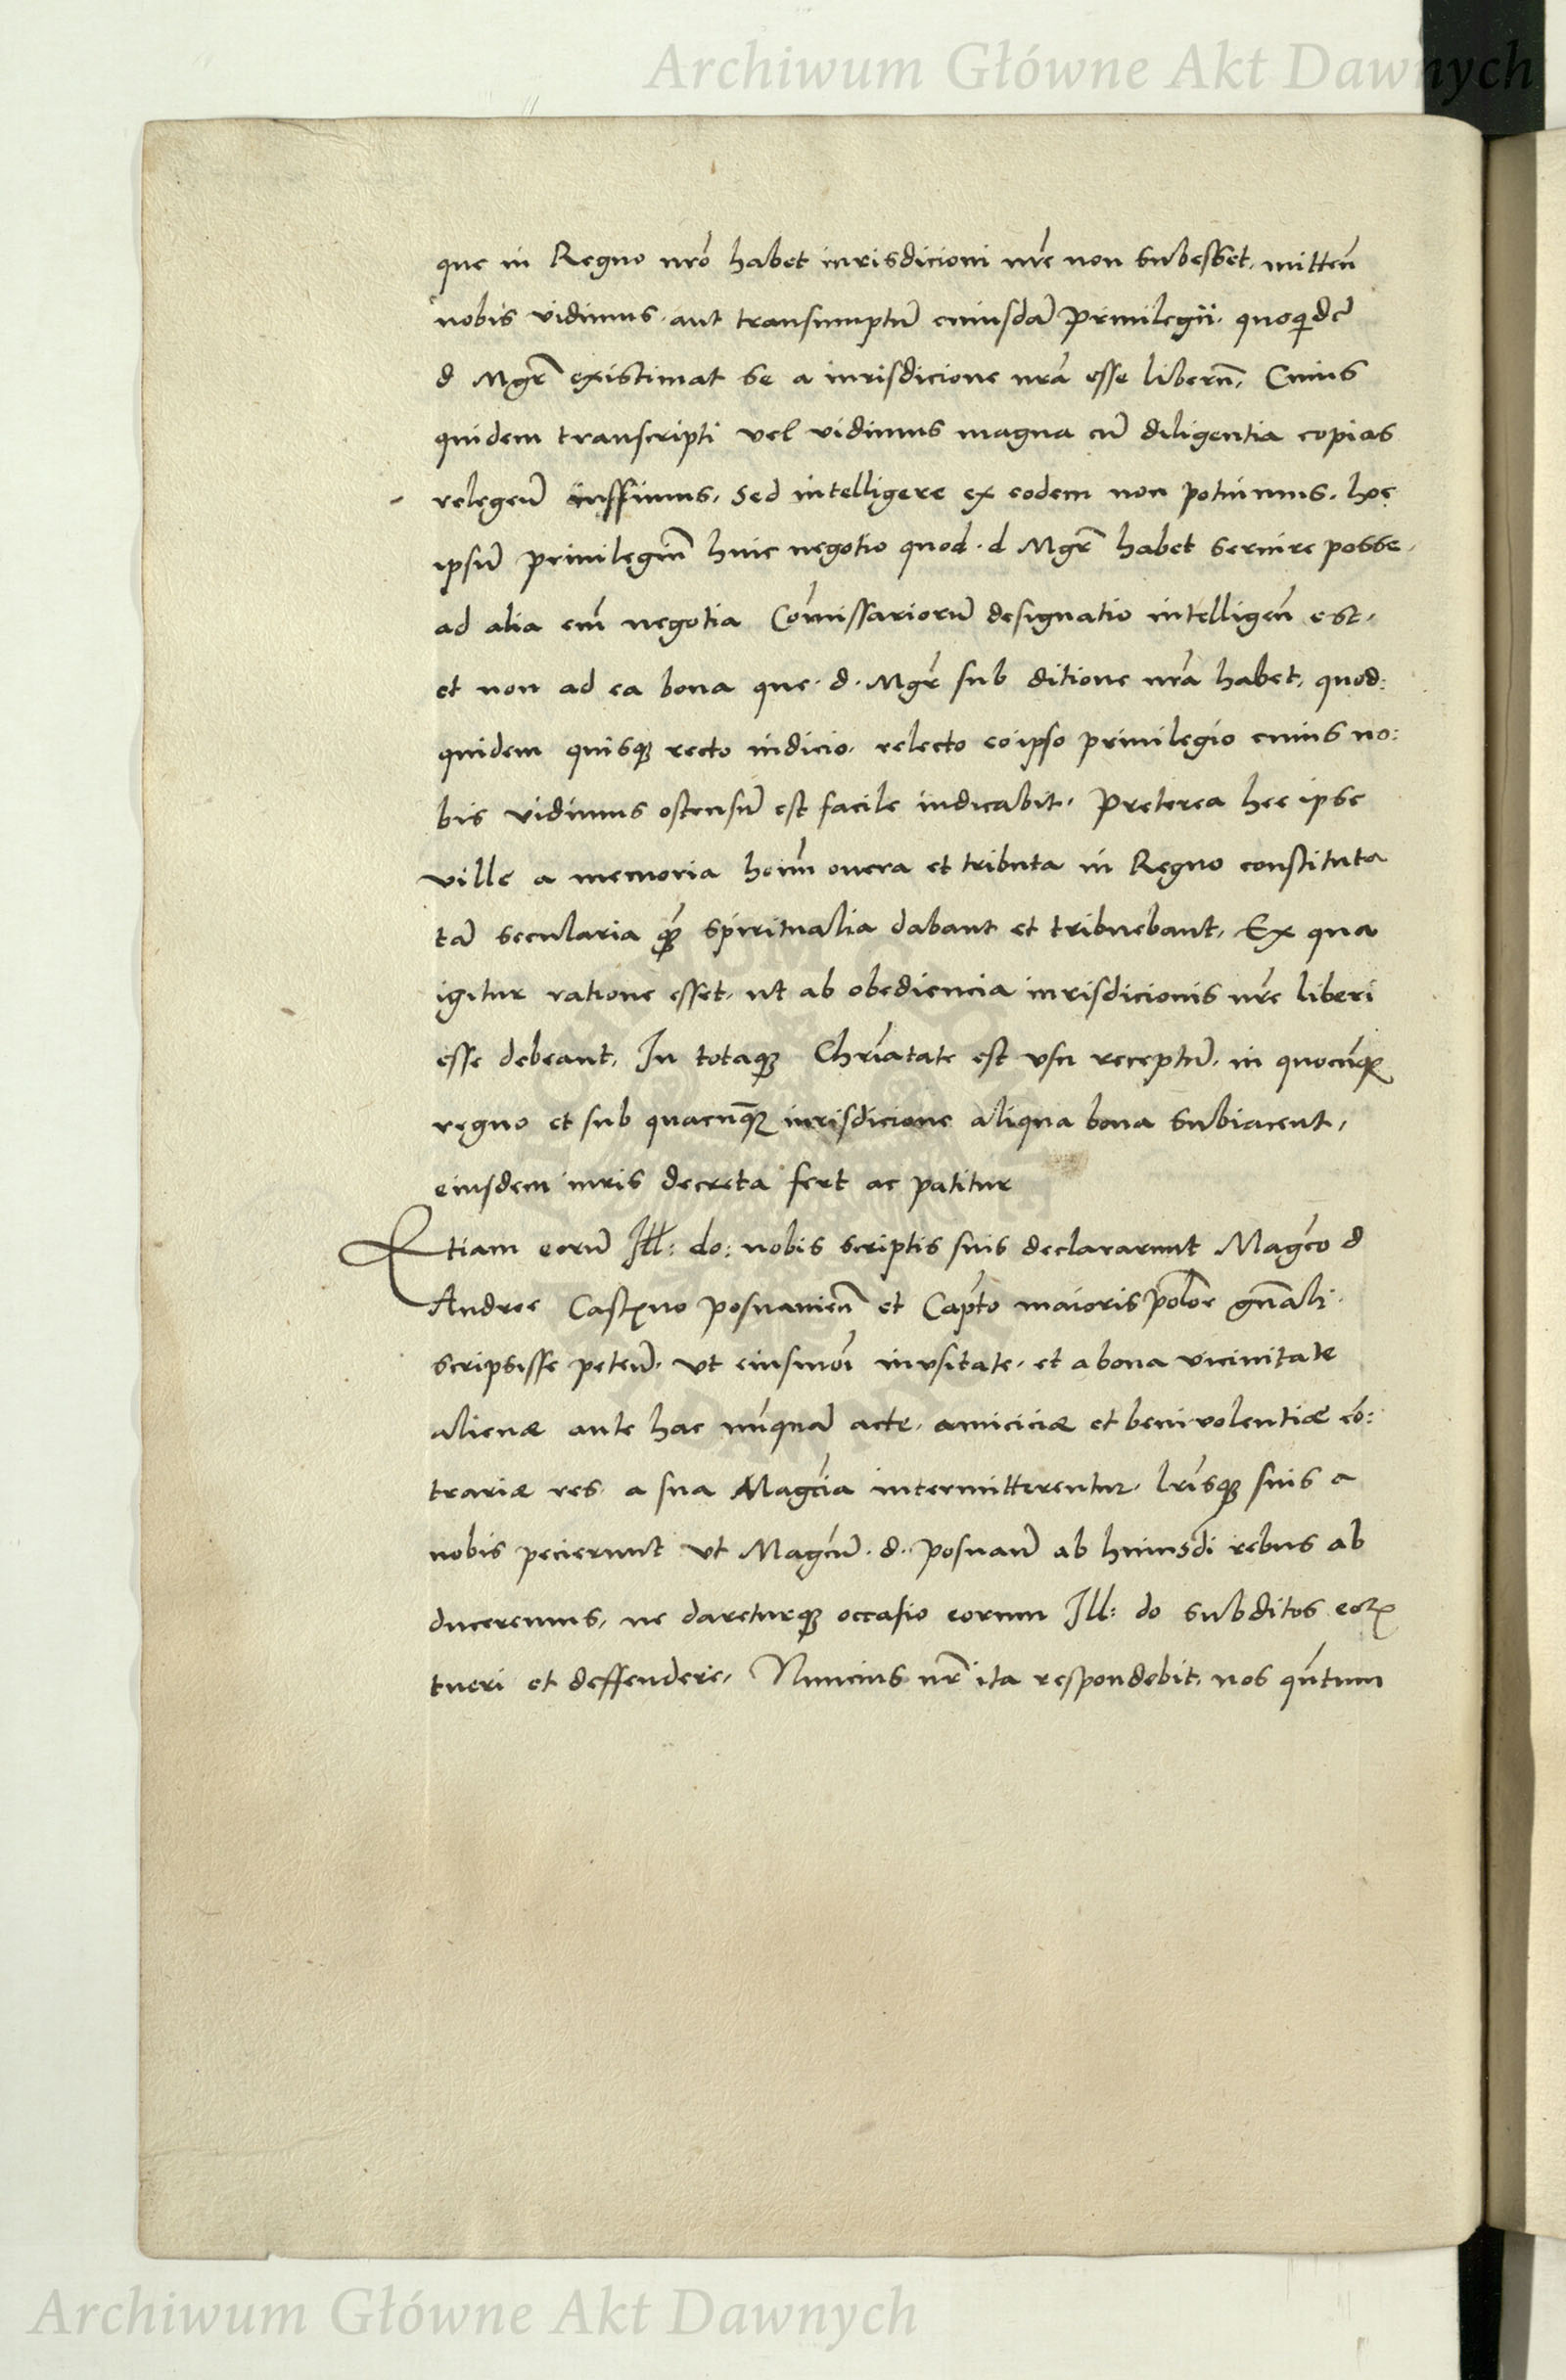 Archiwum Główne Akt Dawnych
que in Regno nrō habet iurisdicioni nrē non subesset, mitteñ
nobis vidimus aut transumptū cuiusdā priuilegii, quoquidē
d Mgr̄ existimat se a iurisdicione nrā esse liberū, Cuius
quidem transcripti vel vidimus magna cū diligentia copias
relegeñ iussimus, sed intelligere ex eodem non potuimus, hoc
ipsū priuilegiū huic negotio quod d Mgr̄ habet seruire posse,
ad alia em̄ negotia Com̄issariorū designatio intelligeñ est,
et non ad ea bona que d. Mgr̄ sub ditione nrā habet, quod:
quidem quisqȝ recto iudicio, relecto eoipso priuilegio cuius no:
bis vidimus ostensū est facile iudicabit, Preterea hee ipse
ville a memoria hoīm onera et tributa in Regno constituta
tā secularia qȝ̄ spiritualia dabant et tribuebant, Ex qua
igitur ratione esset, ut ab obediencia iurisdicionis nrē liberi
esse debeant, In totaqȝ Chrīatate est vsu receptū, in quocūqȝ
regno et sub quacūqȝ iurisdicione aliqua bona subiacent,
eiusdem iuris decreta fert ac patitur
Etiam eorū Ill: do: nobis scriptis suis declararunt Magco d
Andree Castxno posnanieñ et Capto maioris polōe gn̄ali
scripsisse peteñ, vt eiusmōi inusitate, et a bona vicinitate
alienæ ante hac nūquā acte, amiciciæ et beniuolentiæ cō:
trariæ res, a sua Magcīa intermitterentur, lrīsqȝ suis a
nobis pecierunt vt Magcū. d. posnanū ab huiusdi rebus ab
duceremus, ne dareturqȝ occasio eorum Ill: do subditos eoꝝ
tueri et deffendere, Nuncius nr̄ ita respondebit, nos qn̄tum
Archiwum Główne Akt Dawnych